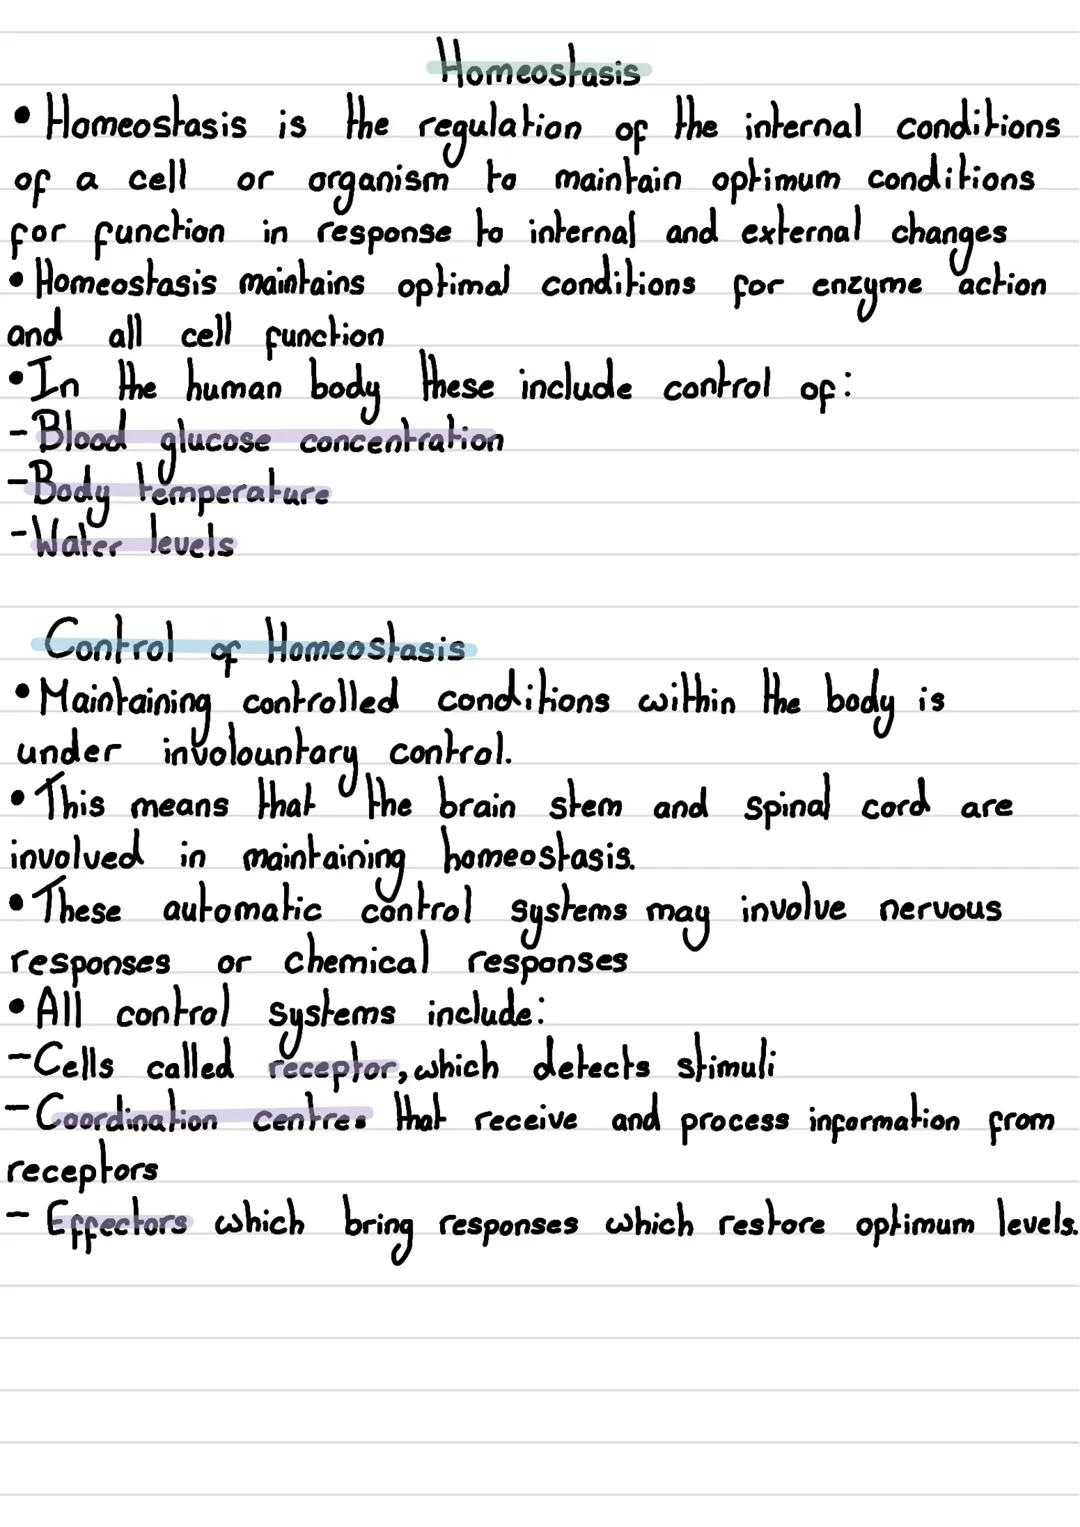 Homeostasis
• Homeostasis is the regulation of the internal conditions
of a cell or organism to maintain optimum conditions
for function in response to internal and external changes
• Homeostasis maintains optimal conditions for enzyme action
and all cell function
• In the human body these include control of:
- Blood glucose concentration
- Body temperature
- Water levels
Control of Homeostasis
• Maintaining controlled conditions within the body is
under involountary control.
• This means that the brain stem and spinal cord are
involved in maintaining homeostasis.
• These automatic control systems may involve nervous
responses or chemical responses
• All control systems include:
- Cells called receptor, which detects stimuli
- Coordination centres that receive and process information from
receptors
- Effectors which bring responses which restore optimum levels.